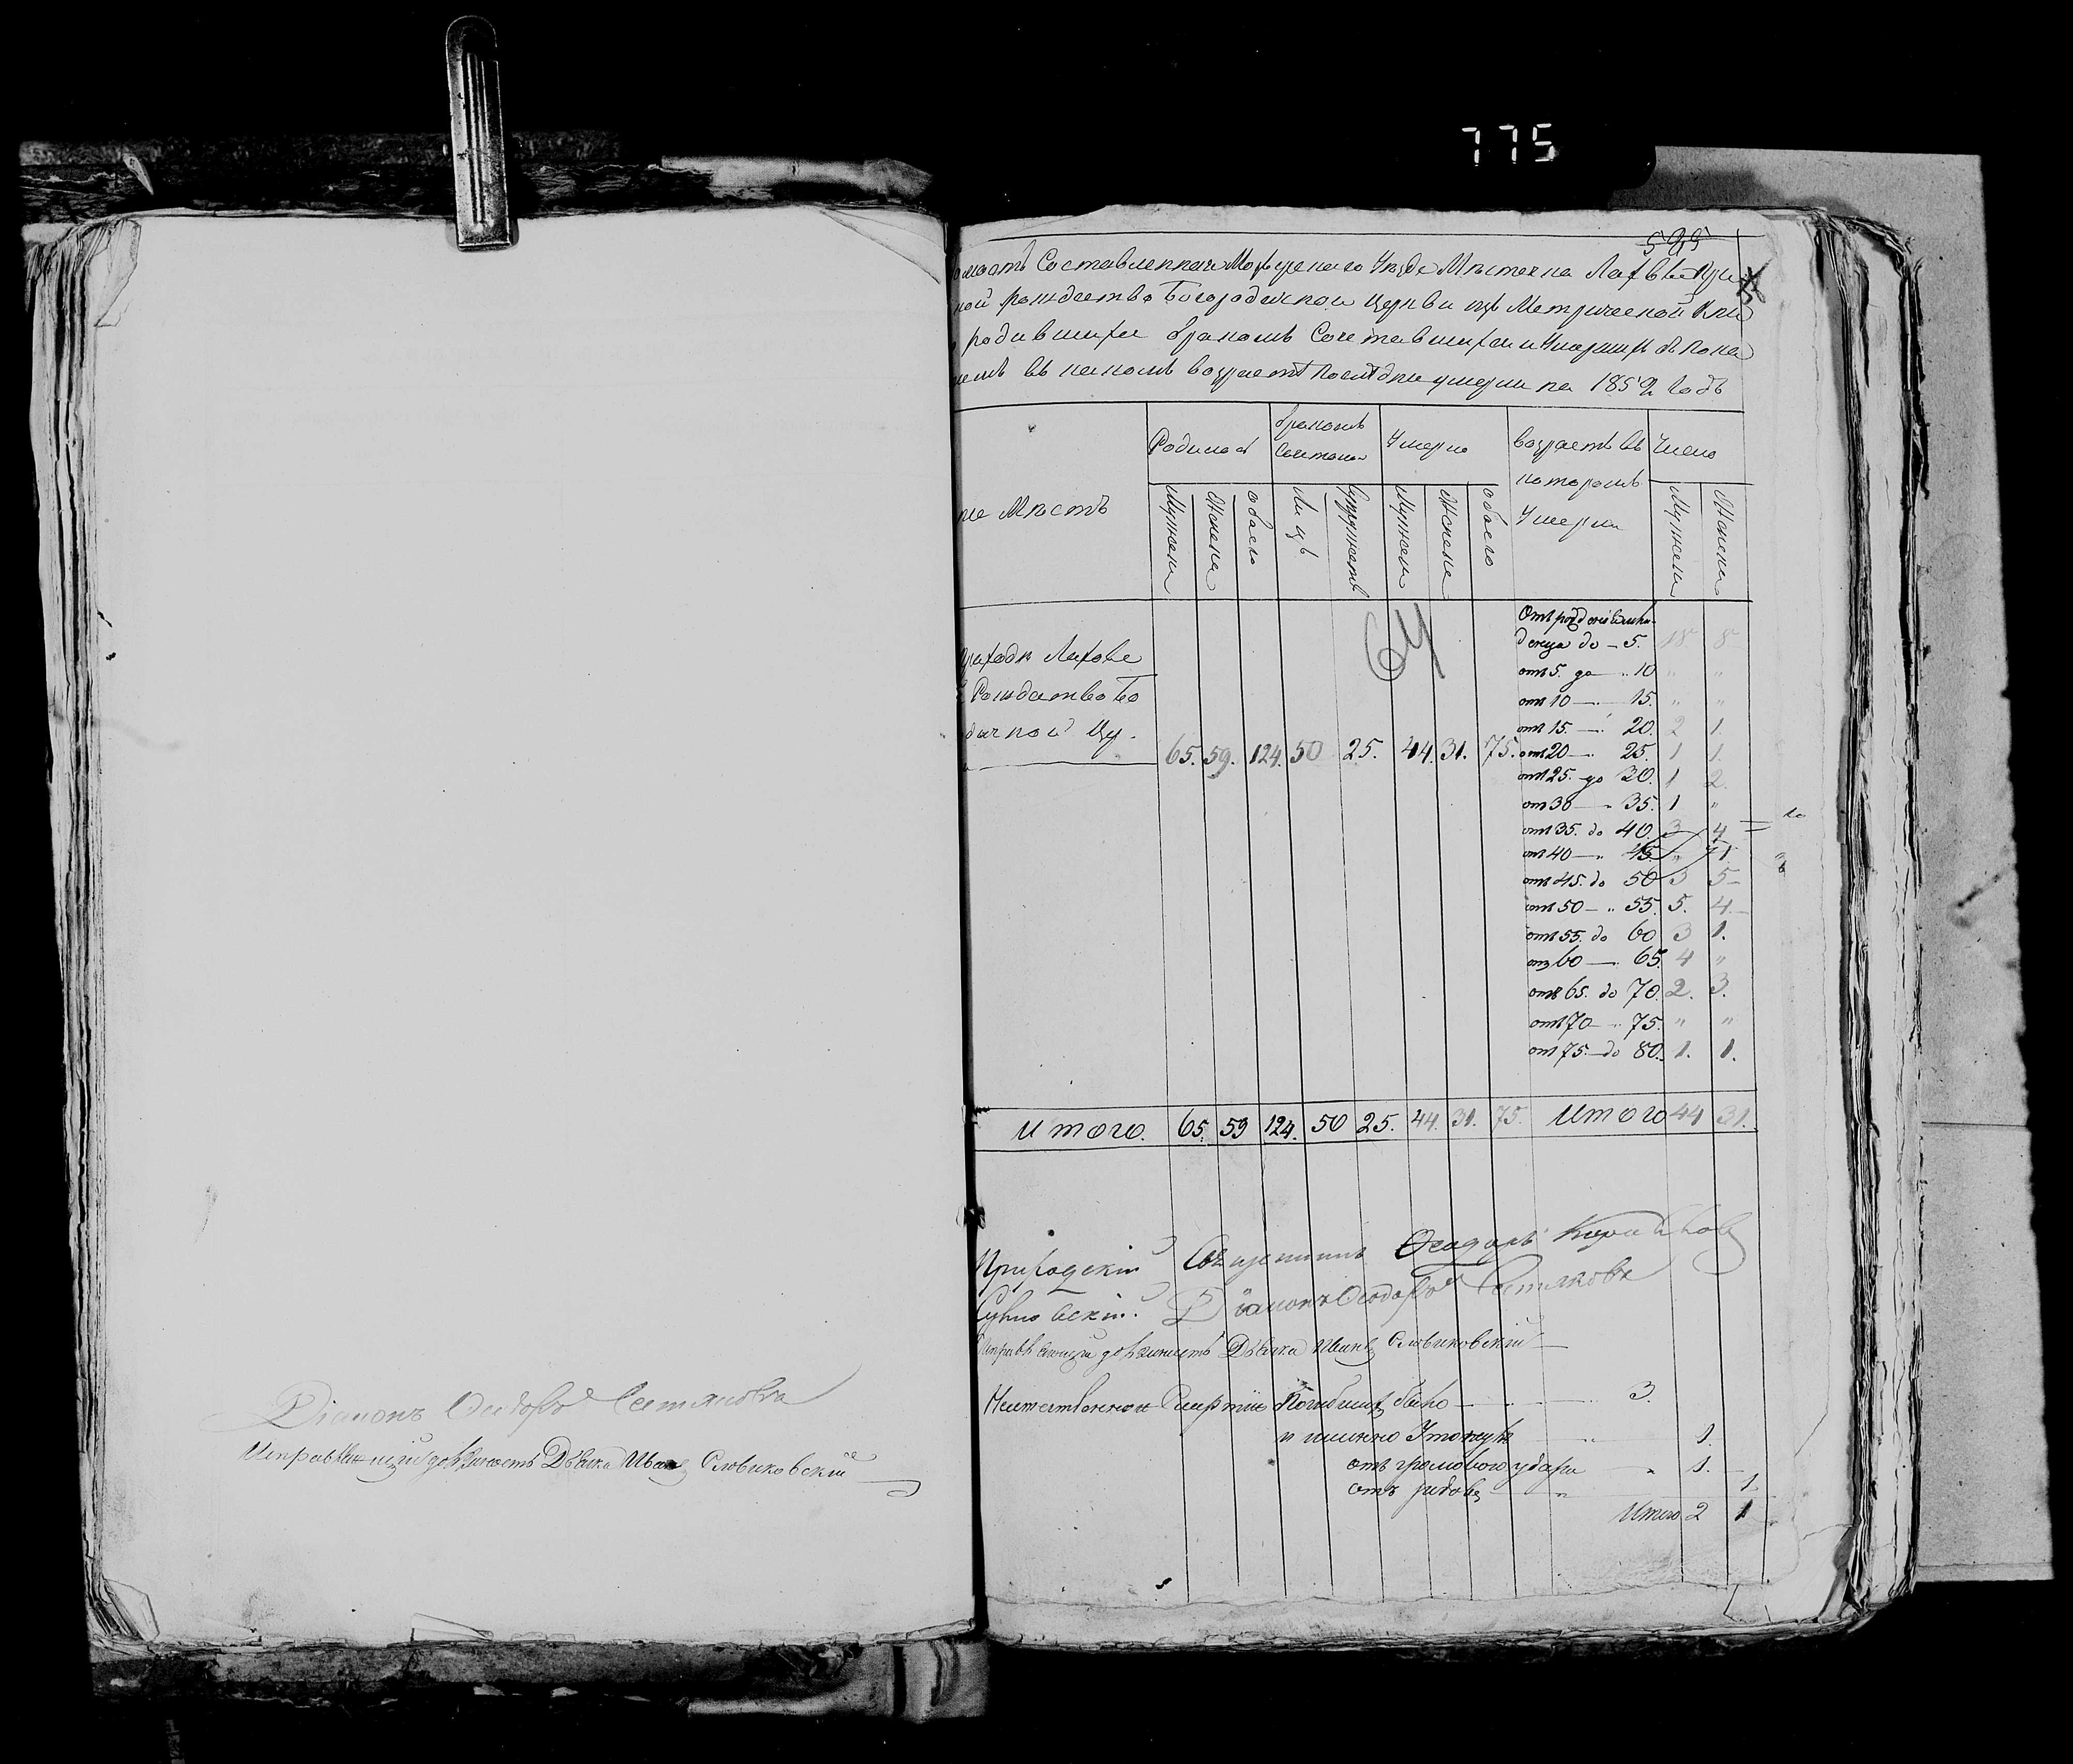 775
Діаконъ Ѳеодоръ
Исправляющій должность Дьячка Иванъ Словиковскій
595
Составленная Мозырскаго Уѣзда Мѣстечка Лахвы При
ной рождество Богородичной Церкви изъ Метрической Кни
родившихся бракомъ Сочетавшихся и Умершихъ съ Пока
въ какомъ возрастѣ послѣдніе умерли на 1852 Годъ
Мѣстъ
Родилось
бракомъ Сочетано
Умерло
возрастъ въ которомъ Умерли
Число
Мужеска
Женска
обоего
Лицъ
Супружествъ
Мужеска
Женска
обоего
Мужеска
Женска
64
Лахов
Рождество Бо
дичной Цер.
65. 59. 124. 50 25. 44. 31. 75.
Отъ рожденія
до - 5. 18 8
отъ 5. до - „ 10 „ „
отъ 10 — 15. „ „
отъ 15. — 20. 2 1.
отъ 20 — 25. 1 1.
отъ 25. до 30. 1 2.
отъ 30 — „ 35. 1 „
отъ 35. до 40. 3 4
отъ 40 — „ 45. „ 1.
отъ 45. до 50 3 5
отъ 50 — „ 55. 5. 4
отъ 55. до 60 3 1.
отъ 60 — 65. 4 „
отъ 65. до 70. 2. 3.
отъ 70 — „ 75. „ „
отъ 75. — до 80. 1. 1.
Итого. 65. 59 124. 50 25. 44. 31. 75. Итого 44 31.
Приходскій Священникъ Ѳеодоръ
Діаконъ Ѳеодоръ
Исправляющій должность Дьячка Иванъ Словиковскій
Неестественною Смертію Погибшихъ было — 3.
и именно Утонулъ „ 1.
отъ громоваго удара „ 1.
отъ родовъ „ 1.
Итого 2 1